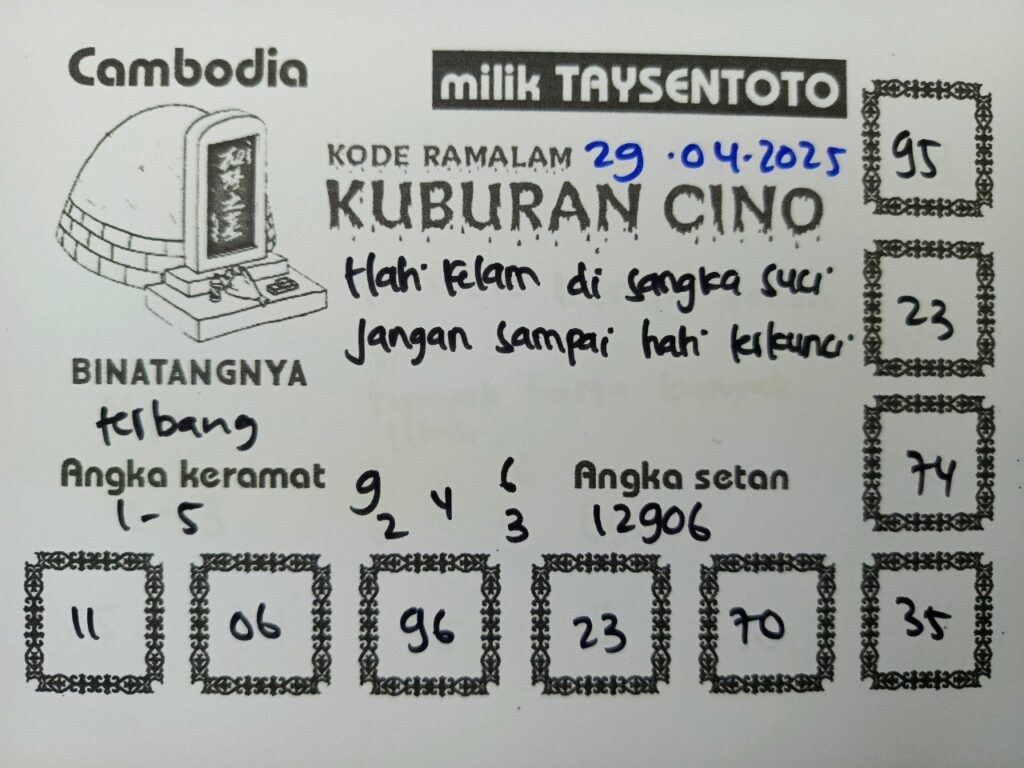 Cambodia
milik TAYSENTOTO
KODE RAMALAM 29.04.2025
KUBURAN CINO
Hati kelam di sangka suci
Jangan sampai hati terkunci
BINATANGNYA
terbang
Angka keramat
1-5
9 2 4 6 3
Angka setan
12906
95
23
74
11 06 96 23 70 35